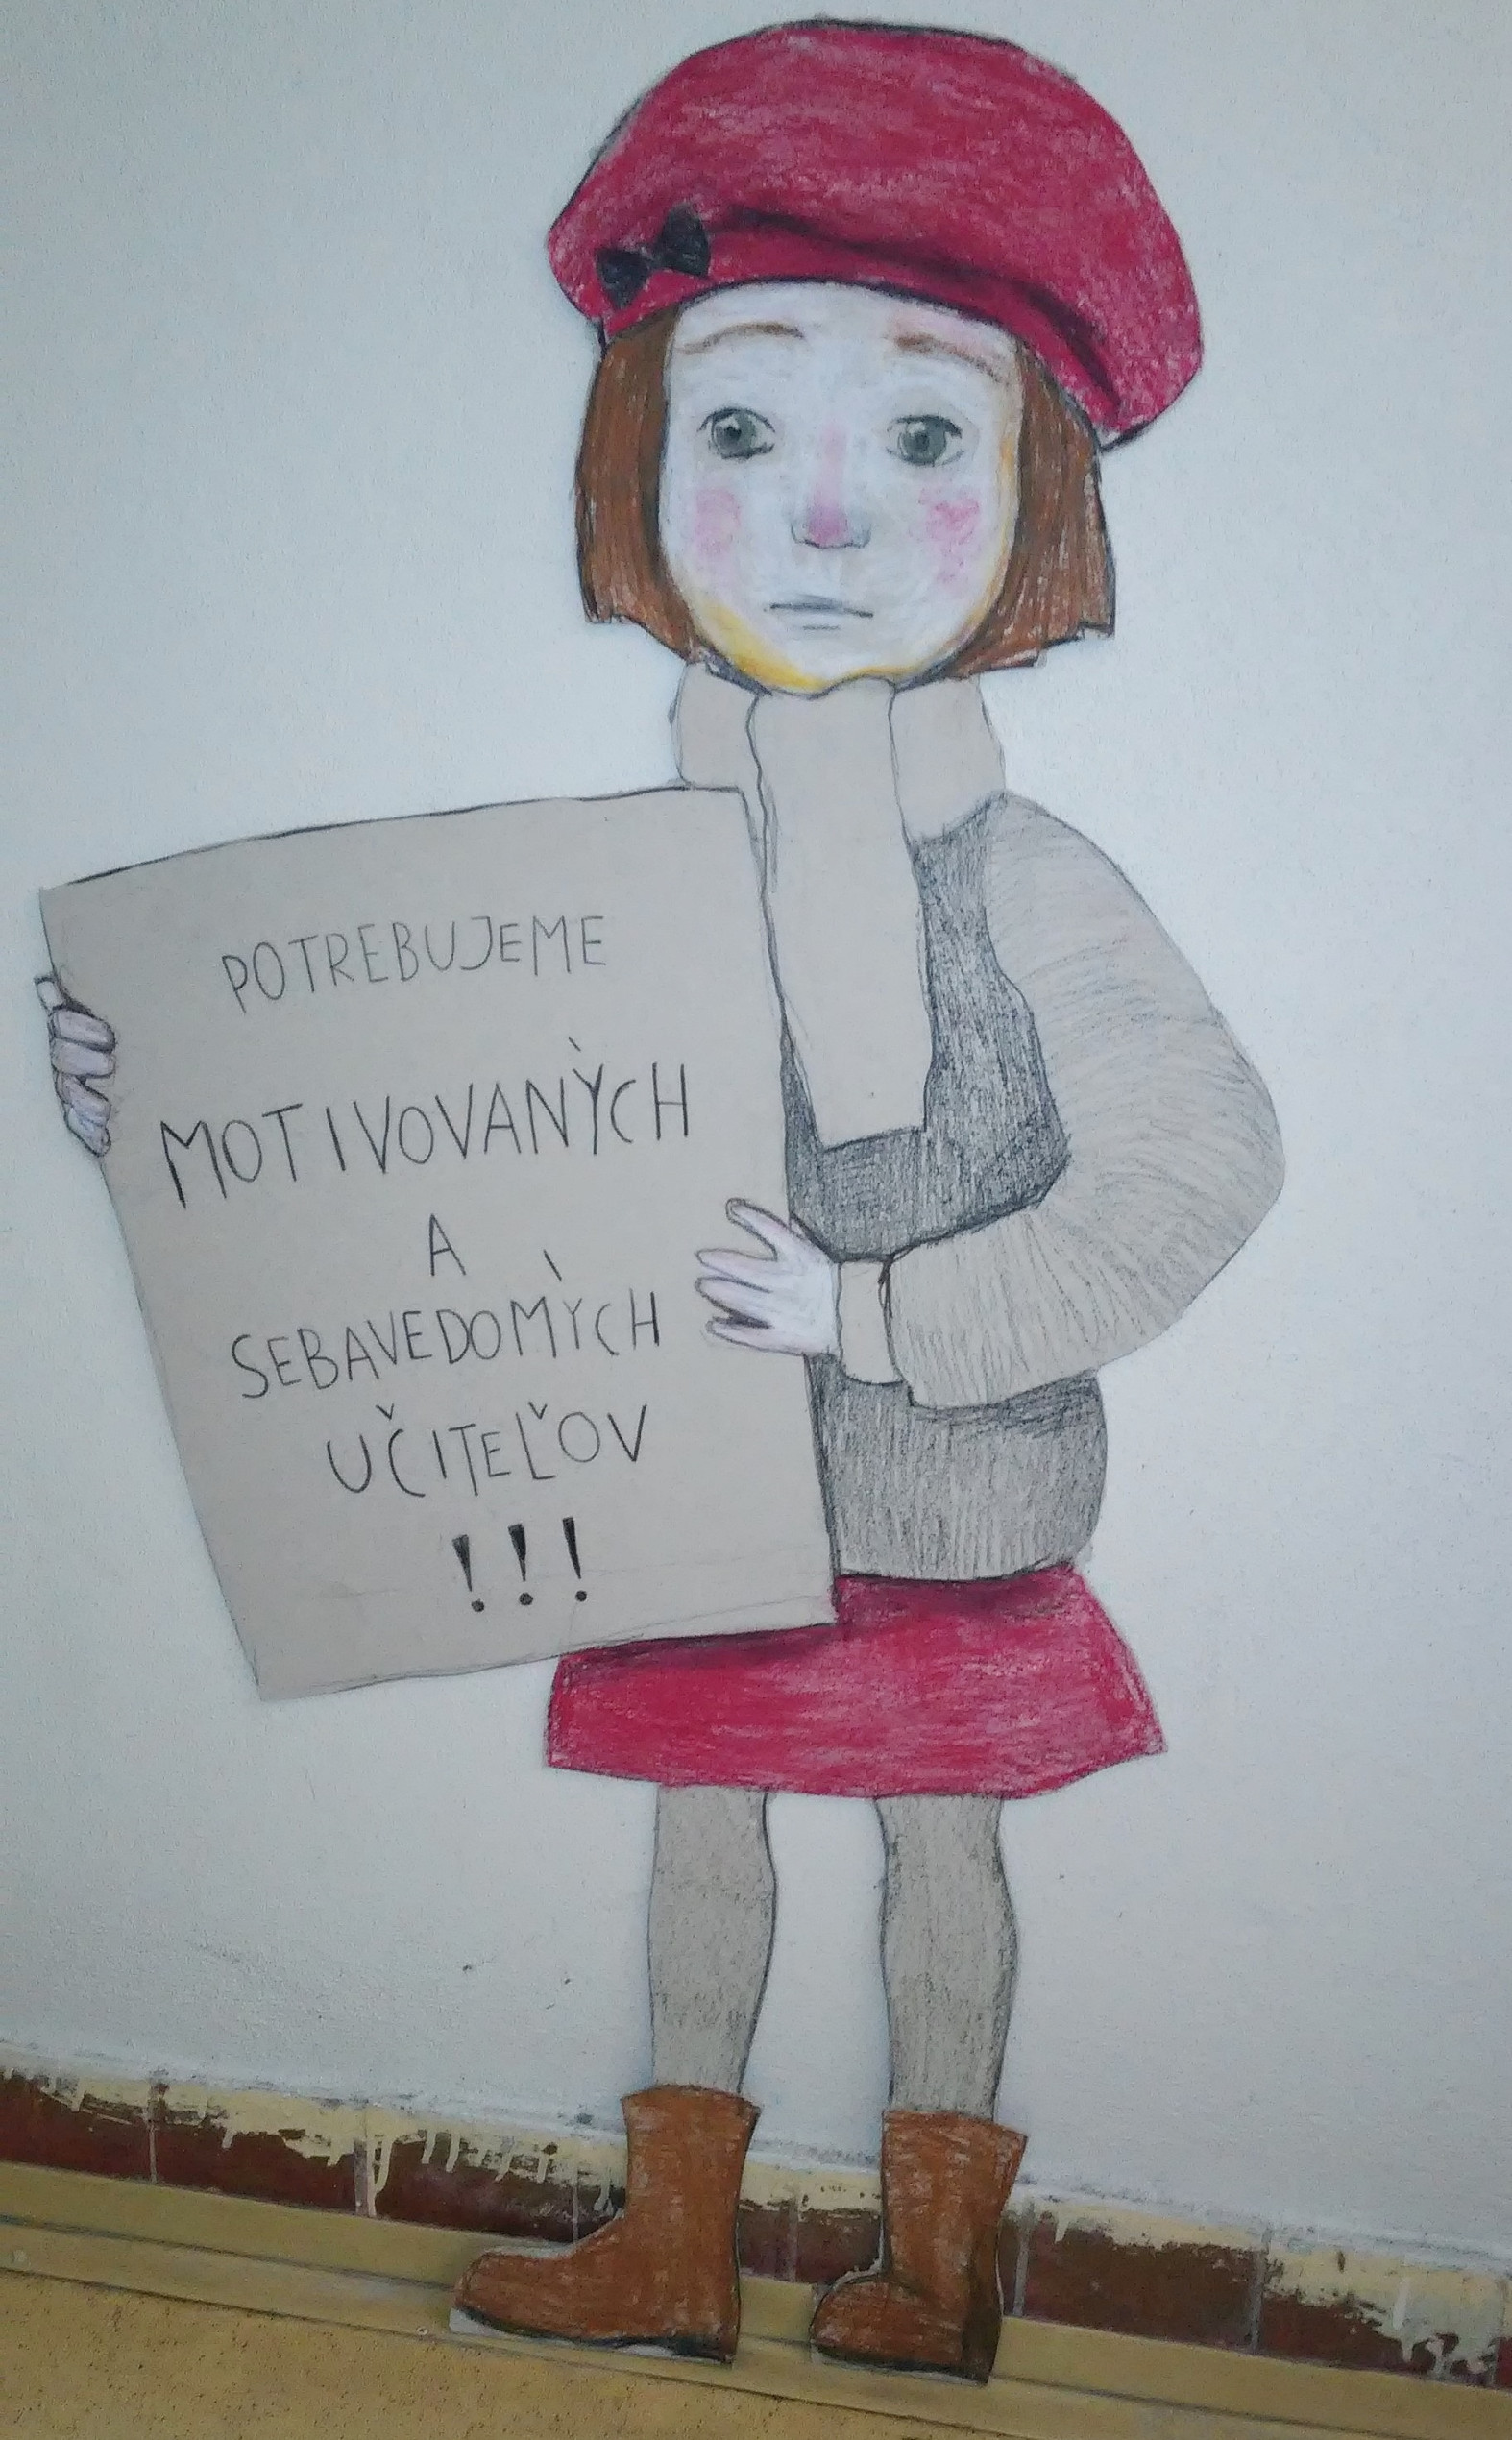 POTREBUJEME
MOTIVOVANỲCH
A
SEBAVEDOMỲCH
UČITEĽOV
!!!